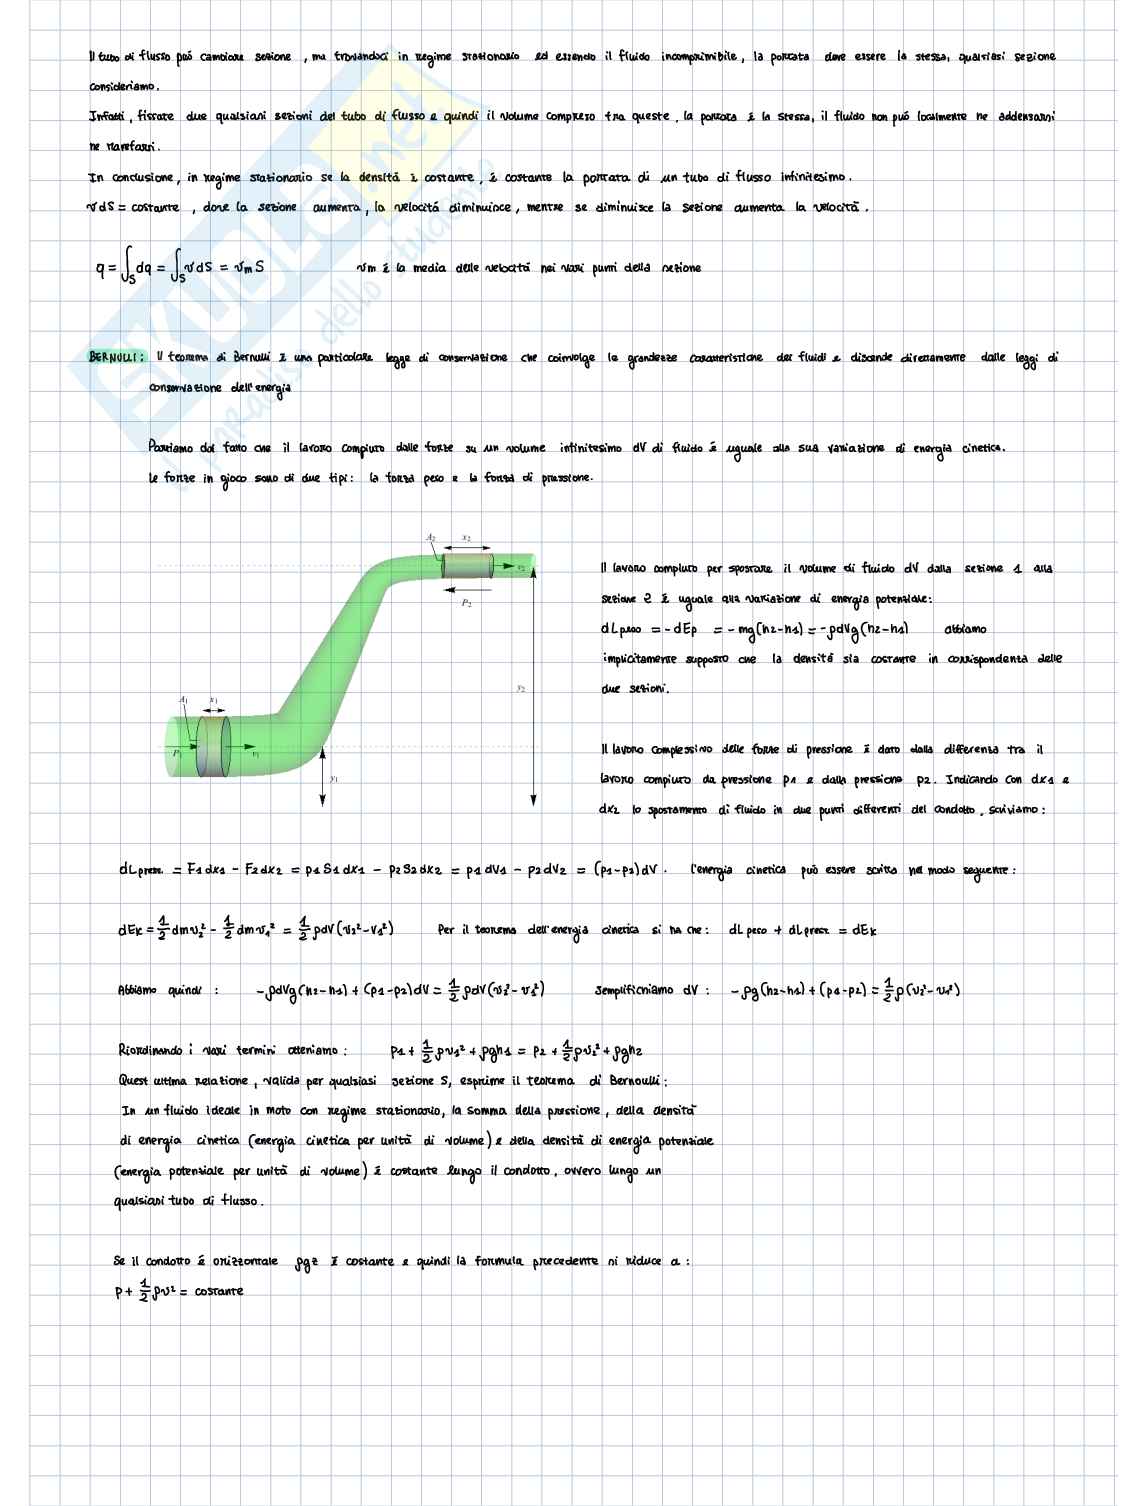 Il tubo di flusso può cambiare sezione, ma trovandoci in regime stazionario ed essendo il fluido incomprimibile, la portata deve essere la stessa, qualsiasi sezione
consideriamo.
Infatti, fissate due qualsiasi sezioni del tubo di flusso e quindi il volume compreso tra queste, la portata è la stessa, il fluido non può localmente ne addensarsi
ne rarefarsi.
In conclusione, in regime stazionario se la densità è costante, è costante la portata di un tubo di flusso infinitesimo.
vdS = costante, dove la sezione aumenta, la velocità diminuisce, mentre se diminuisce la sezione aumenta la velocità.
q = ∫S dq = ∫S v dS = vm S vm è la media delle velocità nei vari punti della sezione
BERNULLI: Il teorema di Bernulli è una particolare legge di conservazione che coinvolge le grandezze caratteristiche dei fluidi e discende direttamente dalle leggi di
conservazione dell'energia
Partiamo dal fatto che il lavoro compiuto dalle forze su un volume infinitesimo dV di fluido è uguale alla sua variazione di energia cinetica.
Le forze in gioco sono di due tipi: la forza peso e la forza di pressione.
A2 x2
v2
P2
y2
A1 x1
P1 v1
y1
Il lavoro compiuto per spostare il volume di fluido dV dalla sezione 1 alla
sezione 2 è uguale alla variazione di energia potenziale:
dLpeso = -dEp = -mg(h2-h1) = -ρdVg(h2-h1) abbiamo
implicitamente supposto che la densità sia costante in corrispondenza delle
due sezioni.
Il lavoro complessivo delle forze di pressione è dato dalla differenza tra il
lavoro compiuto da pressione p1 e dalla pressione p2. Indicando con dx1 e
dx2 lo spostamento di fluido in due punti differenti del condotto, scriviamo:
dLpress. = F1dx1 - F2dx2 = p1S1dx1 - p2S2dx2 = p1dV1 - p2dV2 = (p1-p2)dV. L'energia cinetica può essere scritta nel modo seguente:
dEk = 1/2 dmv2² - 1/2 dmv1² = 1/2 ρdV(v2²-v1²) Per il teorema dell'energia cinetica si ha che: dLpeso + dLpress. = dEk
Abbiamo quindi: -ρdVg(h2-h1) + (p1-p2)dV = 1/2 ρdV(v2²-v1²) Semplifichiamo dV: -ρg(h2-h1) + (p1-p2) = 1/2 ρ(v2²-v1²)
Riordinando i vari termini otteniamo: p1 + 1/2 ρv1² + ρgh1 = p2 + 1/2 ρv2² + ρgh2
Quest ultima relazione, valida per qualsiasi sezione S, esprime il teorema di Bernoulli:
In un fluido ideale in moto con regime stazionario, la somma della pressione, della densità
di energia cinetica (energia cinetica per unità di volume) e della densità di energia potenziale
(energia potenziale per unità di volume) è costante lungo il condotto, ovvero lungo un
qualsiasi tubo di flusso.
Se il condotto è orizzontale ρgz è costante e quindi la formula precedente si riduce a:
p + 1/2 ρv² = costante
SKUOLA.net
il paradiso dello studente